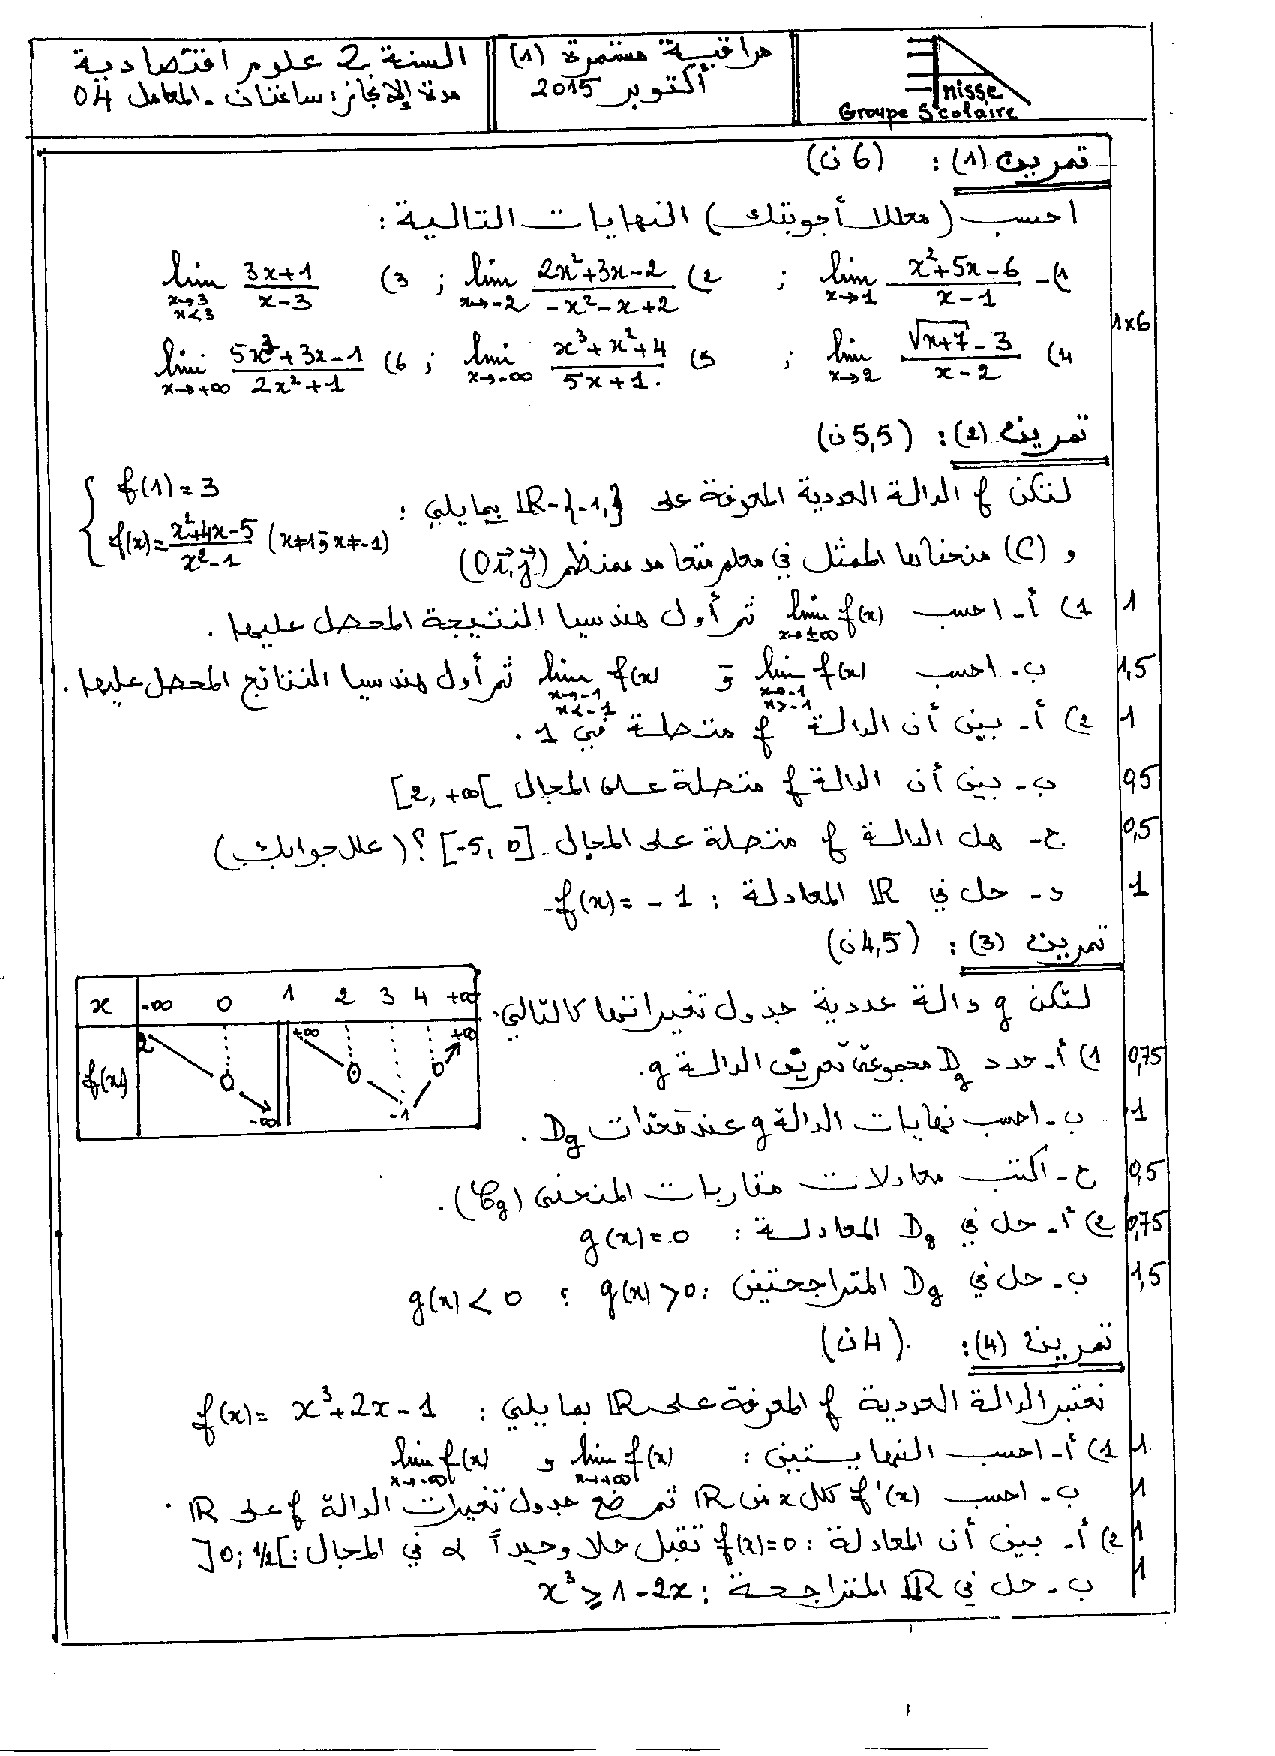 السنة 2 علوم اقتصادية
مدة الإنجاز: ساعتان - المعامل 04
مراقبة مستمرة (1)
أكتوبر 2015
nisse
Groupe Scolaire
تمرين (1): (6 ن)
احسب (معللا أجوبتك) النهايات التالية:
1- lim_{x→1} (x²+5x-6)/(x-1) ; 2) lim_{x→-2} (2x²+3x-2)/(-x²-x+2) ; 3) lim_{x→3, x<3} (3x+1)/(x-3)
1x6
4) lim_{x→2} (√(x+7)-3)/(x-2) ; 5) lim_{x→-∞} (x³+x²+4)/(5x+1) ; 6) lim_{x→+∞} (5x³+3x-1)/(2x²+1)
تمرين (2): (5,5 ن)
لتكن f الدالة العددية المعرفة على IR-{-1} بما يلي:
{ f(1)=3
f(x)=(x²+4x-5)/(x²-1) (x≠1 ; x≠-1)
و (C) منحناها الممثل في معلم متعامد ممنظم (O,i⃗,j⃗)
1) أ- احسب lim_{x→±∞} f(x) ثم أول هندسيا النتيجة المحصل عليها. 1
ب- احسب lim_{x→-1, x>-1} f(x) و lim_{x→-1, x<-1} f(x) ثم أول هندسيا النتائج المحصل عليها. 1,5
2) أ- بين أن الدالة f متصلة في 1. 1
ب- بين أن الدالة f متصلة على المجال [2, +∞[ 0,5
ج- هل الدالة f متصلة على المجال [-5, 0] ؟ (علل جوابك) 0,5
د- حل في IR المعادلة: f(x) = -1 1
تمرين (3): (4,5 ن)
لتكن g دالة عددية جدول تغيراتها كالتالي.
x -∞ 0 1 2 3 4 +∞
f(x) 2 0 -∞ +∞ 0 -1 0 +∞
1) أ- حدد Dg مجموعة تعريف الدالة g. 0,75
ب- احسب نهايات الدالة g عند محدات Dg. 1
ج- اكتب معادلات مقاربات المنحنى (Cg). 0,5
2) أ- حل في Dg المعادلة: g(x)=0 0,75
ب- حل في Dg المتراجحتين: g(x)>0 ; g(x)<0 1,5
تمرين (4): (4 ن)
نعتبر الدالة العددية f المعرفة على IR بما يلي: f(x)= x³+2x-1
1) أ- احسب النهايتين: lim_{x→+∞} f(x) و lim_{x→-∞} f(x) 1
ب- احسب f'(x) لكل x من IR ثم ضع جدول تغيرات الدالة f على IR. 1
2) أ- بين أن المعادلة: f(x)=0 تقبل حلا وحيداً α في المجال: ]0; 1/2[ 1
ب- حل في IR المتراجحة: x³ ≥ 1-2x 1